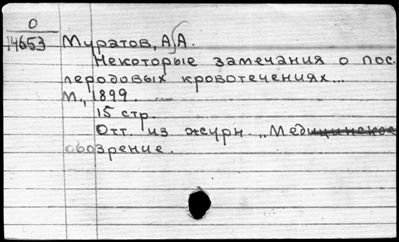 О
14653
Муратов, А.А.
Некоторые замечания о пос
леродовых кровотечениях...
М., 1899.
15 стр.
Отт. из журн. „Медицинское
обозрение.